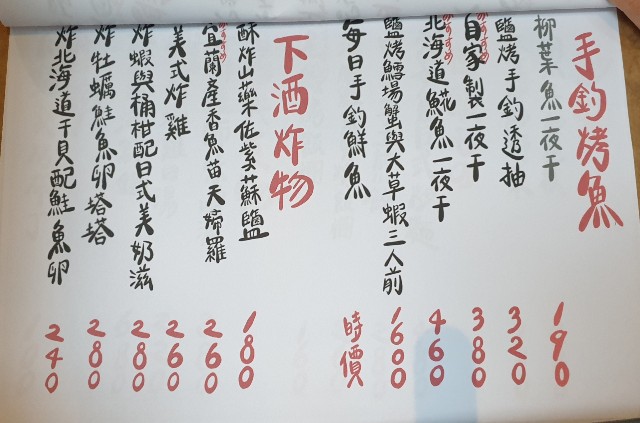 手釣烤魚
柳葉魚一夜干 190
鹽烤手釣透抽 320
おすすめ
自家製一夜干 380
おすすめ
北海道䱛魚一夜干 460
鹽烤鱈場蟹與大草蝦三人前 1600
每日手釣鮮魚 時價
下酒炸物
酥炸山藥佐紫蘇鹽 180
おすすめ
宜蘭產香魚苗天婦羅 260
美式炸雞 260
炸蝦與桶柑配日式美奶滋 280
炸牡蠣鮭魚卵塔塔 280
炸北海道干貝配鮭魚卵 240